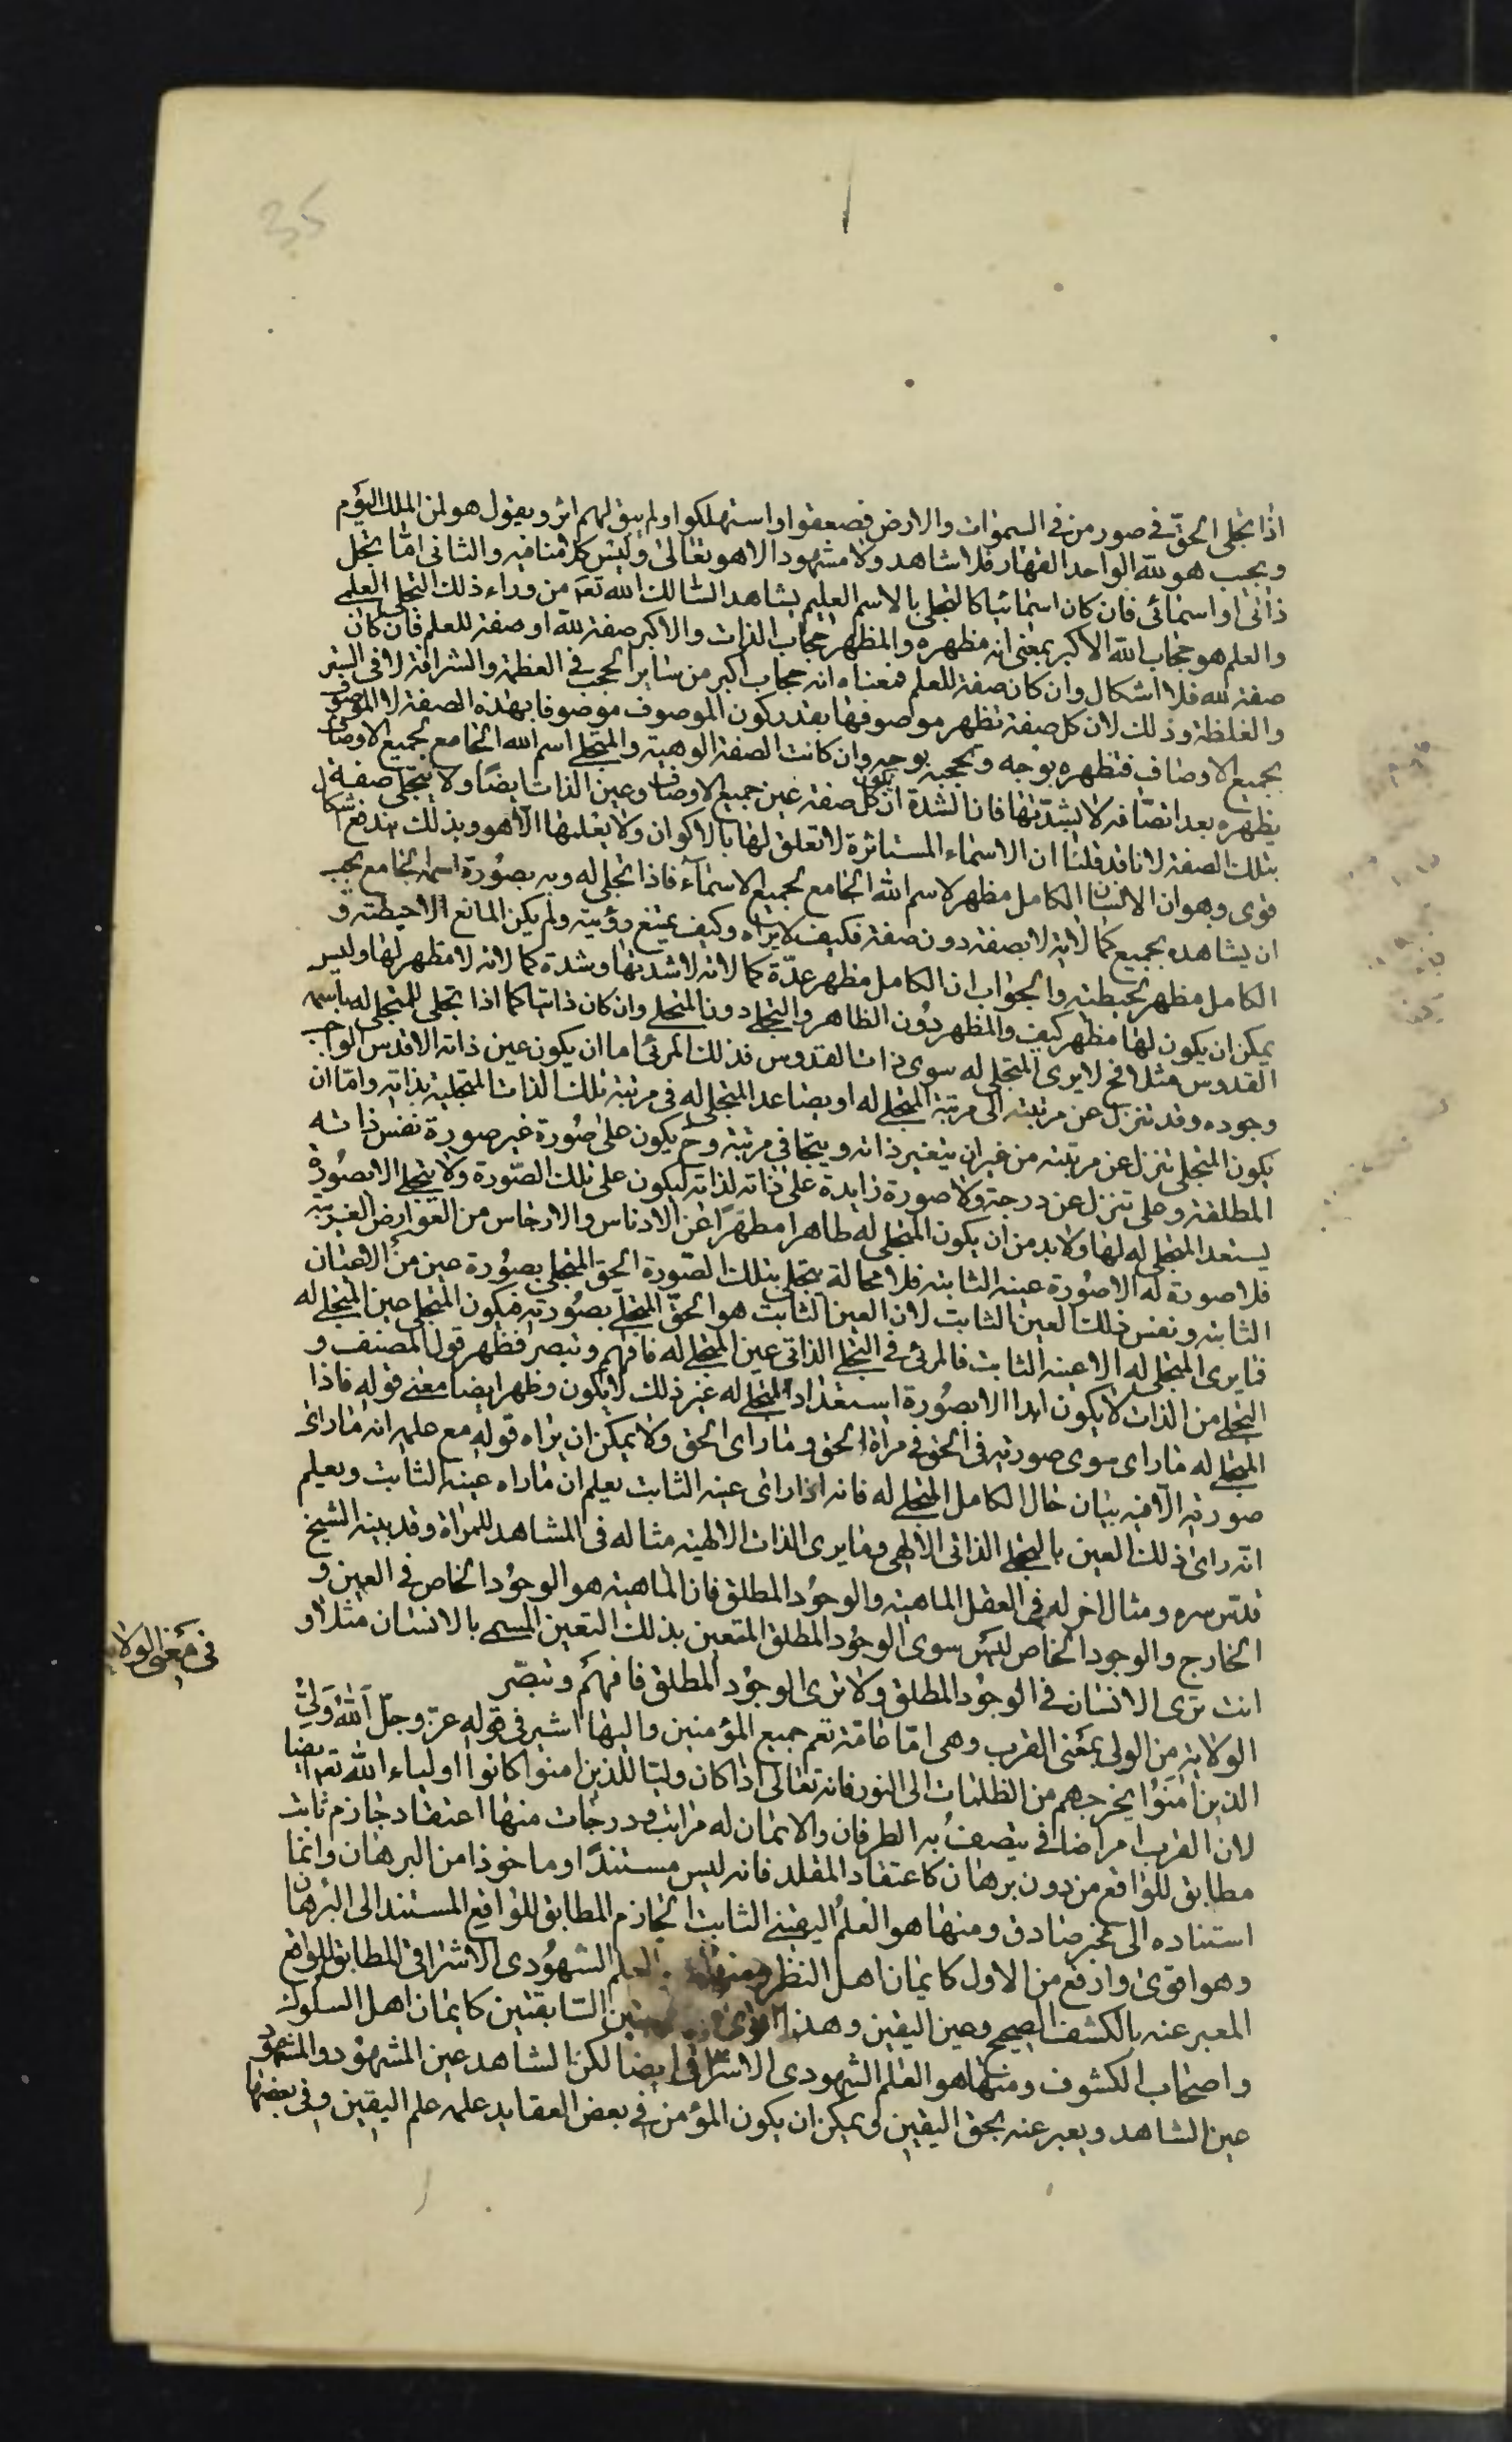 35
اذا تجلى الحقّ في صور من في السموات والارض فصعقوا واستهلكوا ولم يبق لهم اثر ويقول هو لمن الملك اليوم
ويجيب هو لله الواحد القهار فلا شاهد ولا مشهود الا هو تعالى وليس كلامنا فيه والثاني امّا تجل
ذاتى او اسمائى فان كان اسمائيا كالتجلى بالاسم العليم يشاهد السالك الله تعـ من وراء ذلك التجلى العلمى
والعلم هو حجاب الله الاكبر بمعنى انه مظهره والمظهر حجاب الذات والاكبر صفة لله او صفة للعلم فان كان
صفة لله فلا اشكال وان كان صفة للعلم فمعناه انه حجاب اكبر من ساير الحجب في العظمة والشرافة لا في الستر
والغلظة وذلك لان كل صفة تظهر موصوفها بقدر كون الموصوف موصوفا بهذه الصفة لا الموصوف
بجميع الاوصاف فتظهره بوجه وتحجبه بوجه وان كانت الصفة الوهية والمتجلى اسم الله الجامع لجميع الاوصاف
يظهره بعد اتصافه لا لشدتها فان الشدة ان يكون كل صفة عين جميع الاوصاف وعين الذات ايضًا ولا يتجلى صفة
بتلك الصفة لانا قد قلنا ان الاسماء المستاثرة لا تعلق لها بالاكوان ولا يعلمها الّا هو وبذلك يندفع اشكال
قوى وهو ان الانسان الكامل مظهر لاسم الله الجامع لجميع الاسمآء فاذا تجلى له ربه بصورة اسمه الجامع يجب
ان يشاهده بجميع كمالاته لا بصفة دون صفة فكيف لا يراه وكيف يمتنع رؤيته ولم يكن المانع الا حيطته و
الكامل مظهر لحيطته والجواب ان الكامل مظهر عدّة كمالاته لا شدتها وشدة كمالاته لا مظهر لها وليس
يمكن ان يكون لها مظهر كيف والمظهر دون الظاهر والتجلى دون المتجلى وان كان ذاتيا كما اذا تجلى للمتجلى له باسمه
القدوس مثلا فح لا يرى المتجلى له سوى ذات القدوس فذلك المرئى اما ان يكون عين ذاته الاقدس الواجب
وجوده وقد تنزل عن مرتبته الى مرتبة المتجلى له او يصاعد المتجلى له فى مرتبة تلك الذات المتجلية بذاته وامّا ان
يكون المتجلى تنزل عن مرتبته من غير ان يتغير ذاته ويتجافى مرتبته وح يكون على صورة غير صورة نفس ذاته
المطلقة وحلى تنزل عن درجته ولا صورة زايدة على ذاته لذاته ليكون على تلك الصّورة ولا يتجلى الا بصُورة
يستعد المتجلى له لها ولا بد من ان يكون المتجلى له طاهرا مطهّرًا عن الادناس والارجاس من العوارض الغريبة
فلا صورة له الا صُورة عينه الثابتة فلا محالة يتجلى بتلك الصّورة الحق المتجلى بصُورة عين من الاعيان
الثابتة ونفس ذلك العين الثابت لان العين الثابت هو الحقّ المتجلّى بصُورته فيكون المتجلى عين المتجلى له
فما يرى المتجلى له الا عينه الثابت فالمرئى في التجلى الذاتى عين المتجلى له فافهم وتبصر فظهر قول المصنف و
التجلى من الذات لا يكون ابدا الا بصُورة استعداد المتجلى له غير ذلك لا يكون وظهر ايضا معنى قوله فاذا
المتجلى له ما راى سوى صورته فى الحق في مرآة الحق وما راى الحق ولا يمكن ان يراه قوله مع علمه انه ما راى
صورته الّا فيه بيان حال الكامل المتجلى له فانه اذا راى عينه الثابت يعلم ان ما راه عينه الثابت ويعلم
انّه راى ذلك العين بالتجلى الذاتى الالهى وما يرى الذات الالهية مثاله فى المشاهد للمرآة وقد بينه الشيخ
قدّس سره ومثال اخر له في العقل الماهية والوجُود المطلق فان الماهية هو الوجُود الخاص في العين و
الخارج والوجود الخاص ليس سوى الوجُود المطلق المتعين بذلك التعين المسمى بالانسان مثلا و
انت ترى الانسان في الوجُود المطلق ولا ترى الوجُود المطلق فافهَم وتبصّر
فى مَعنى الولاية
الولاية من الولى بمَعْنى القرب وهى امّا عامّة تعم جميع المؤمنين واليها اشير فى قوله عزّ وجلّ اَللهُ وَلِىُّ
الذين اٰمَنُوا يخرجهم من الظلمات الى النور فانه تعالى اذا كان وليّا للذين امنوا كانوا اولياء الله تعـ ايضا
لان القرب امر اضافى يتصفُ به الطرفان والايمان له مراتب ودرجات منها اعتقاد جازم ثابت
مطابق للواقع من دون برهان كاعتقاد المقلد فانه ليس مستندًا وماخوذا من البرهان وانما
استناده الى مخبر صادق ومنها هو العلمُ اليقينى الثابت الجازم المطابق للواقع المستند الى البُرهان
وهو اقوى وارفع من الاول كايمان اهل النظر ومنها العلم الشهُودى الاشراقى المطابق للواقع
المعبر عنه بالكشف الصحيح وعين اليقين وهذا اقوى من السابقتين كايمان اهل السلوك
واصحاب الكشوف ومنها هو العلم الشهودى الاشراقى ايضا لكن الشاهد عين المشهُود والمشهود
عين الشاهد ويعبر عنه بحق اليقين ويمكن ان يكون المؤمن في بعض العقايد علمه علم اليقين وفى بعضها